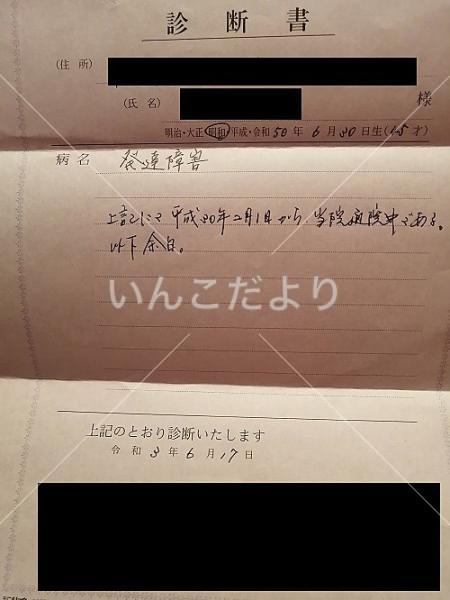 診断書
(住所)
(氏名) 様
明治・大正・昭和・平成・令和50年6月30日生(45才)
病名 発達障害
上記にて平成30年2月1日から、当院通院中である。
以下余白。
いんこだより
上記のとおり診断いたします
令和3年6月17日